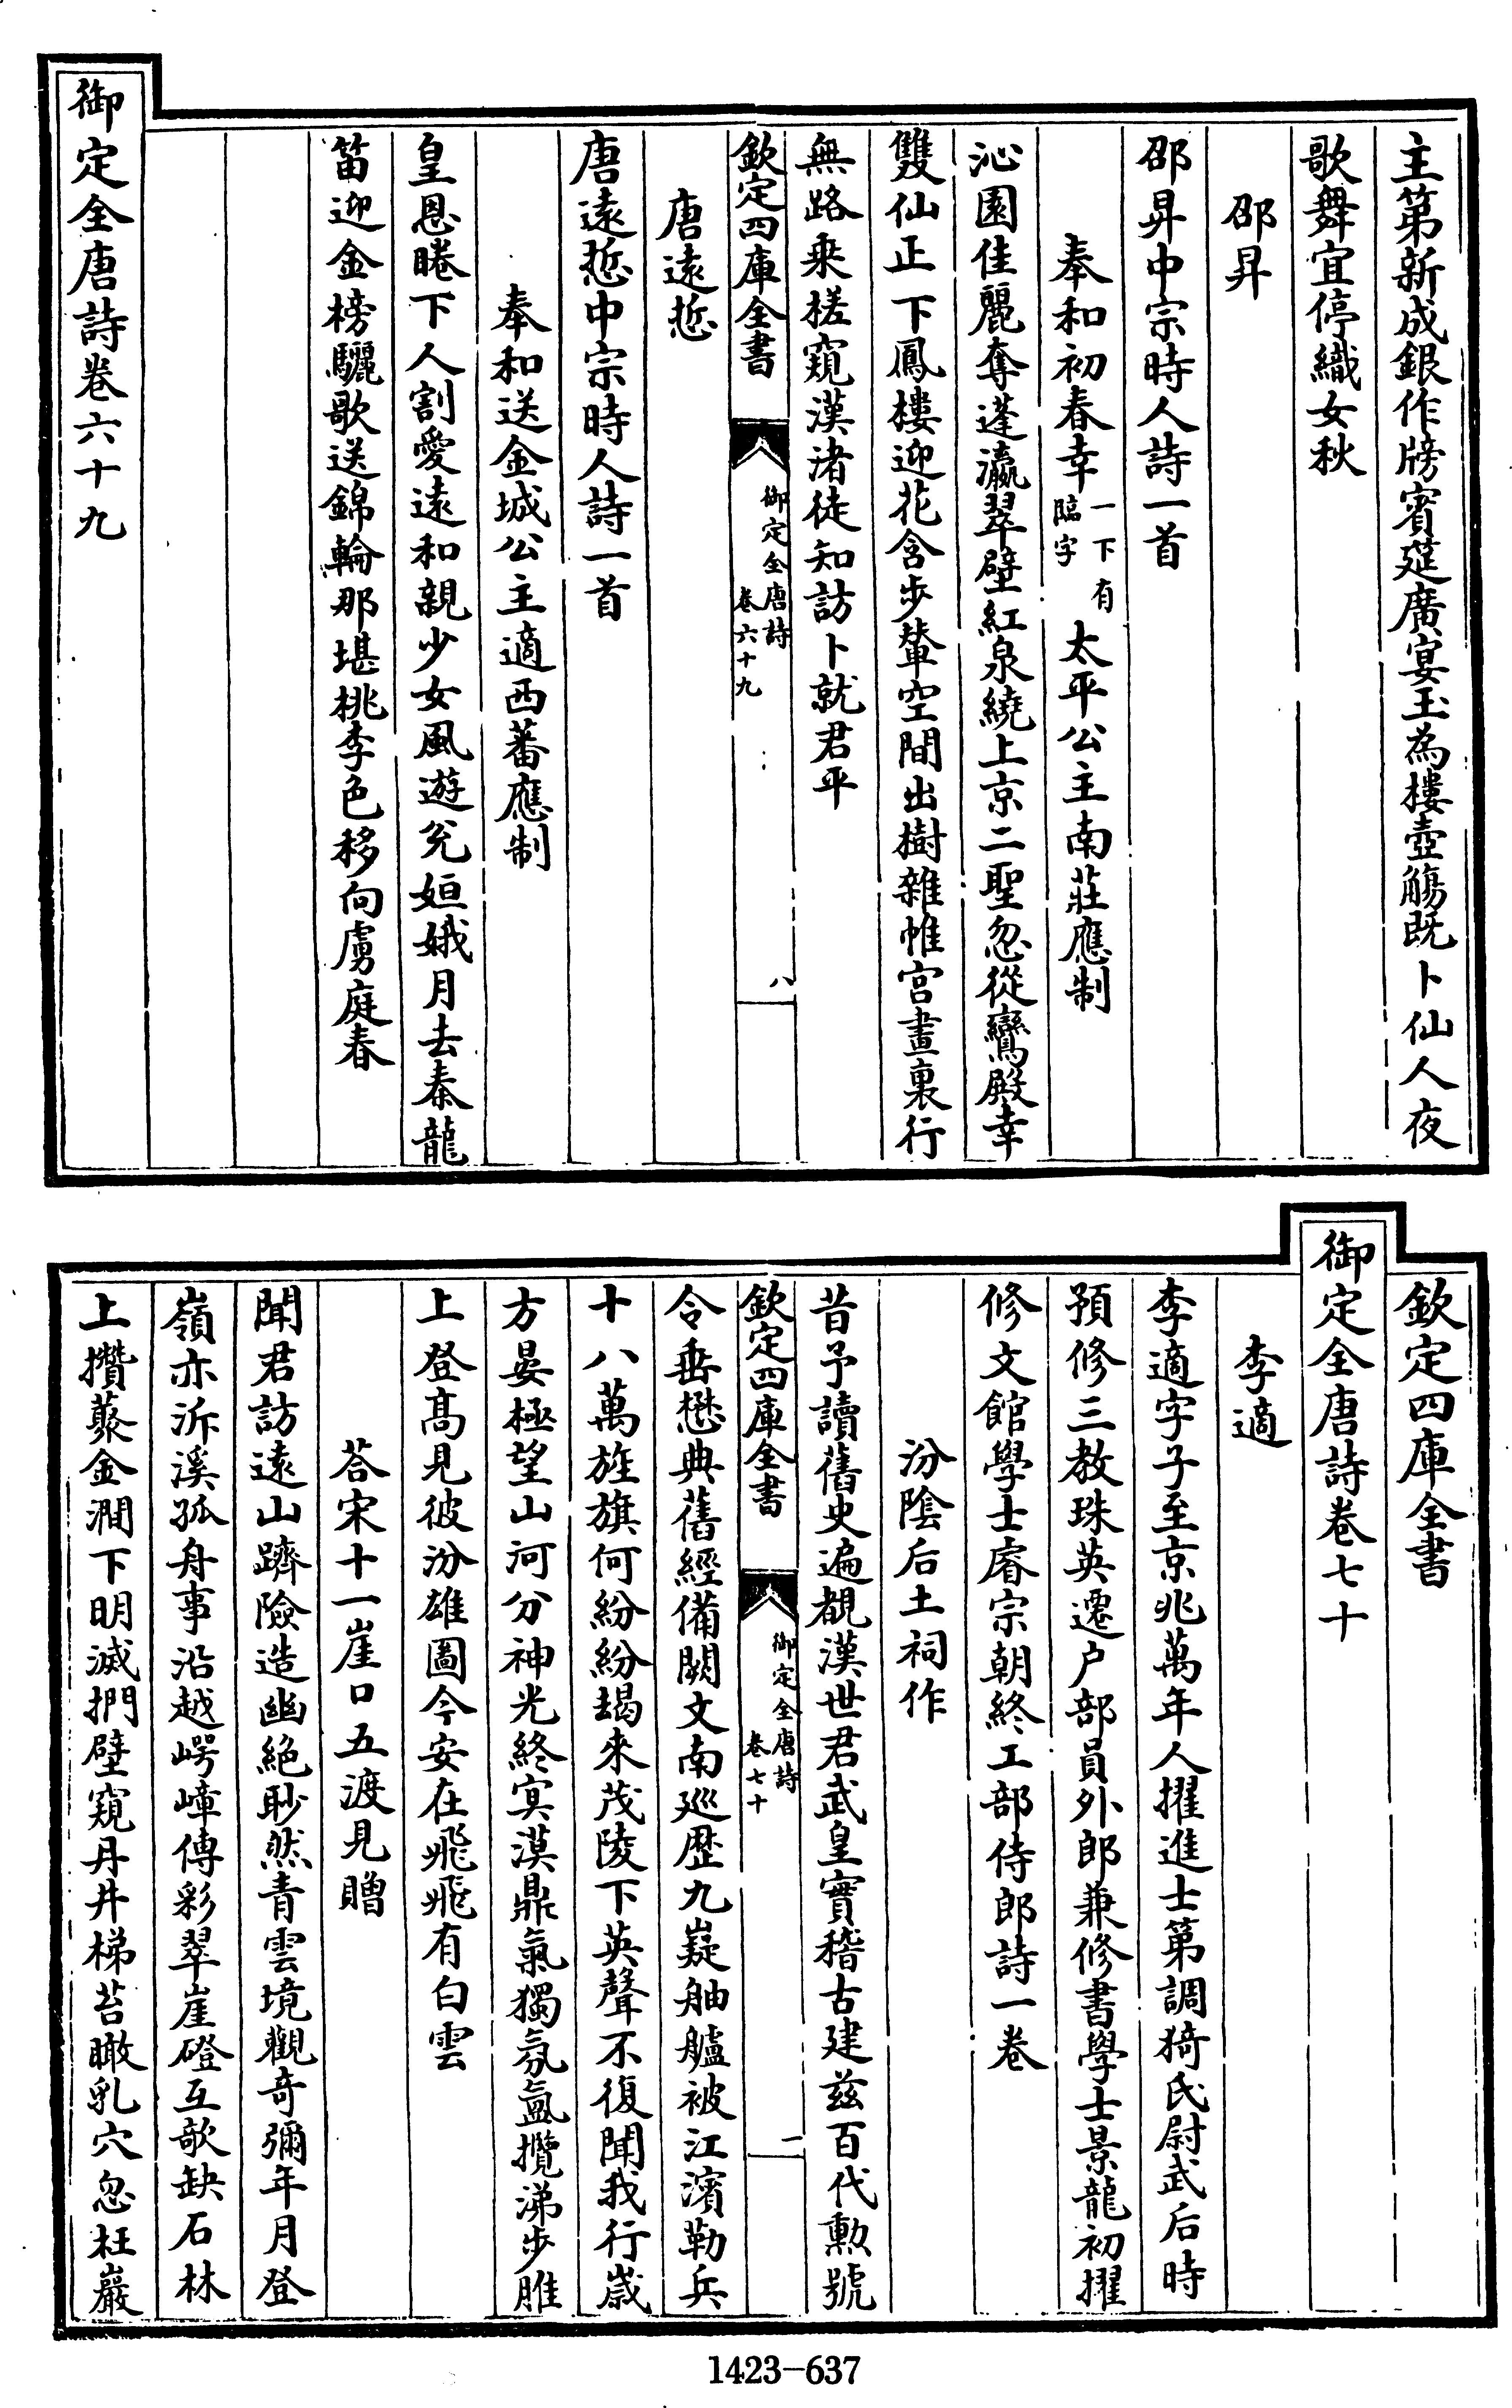 主第新成銀作牓賓筵廣宴玉為樓壺觴既卜仙人夜
歌舞宜停織女秋
邵昇
邵昇中宗時人詩一首
奉和初春幸一下有臨字太平公主南莊應制
沁園佳麗奪蓬瀛翠壁紅泉繞上京二聖忽從鸞殿幸
雙仙正下鳳樓迎花含步輦空間出樹雜帷宫畫裏行
無路乗槎窺漢渚徒知訪卜就君平
欽定四庫全書
御定全唐詩
卷六十九
八
唐遠悊
唐遠悊中宗時人詩一首
奉和送金城公主適西蕃應制
皇恩睠下人割愛遠和親少女風遊兊姮娥月去秦龍
笛迎金榜驪歌送錦輪那堪桃李色移向虜庭春
御定全唐詩卷六十九
欽定四庫全書
御定全唐詩卷七十
李適
李適字子至京兆萬年人擢進士第調猗氏尉武后時
預修三教珠英遷户部員外郎兼修書學士景龍初擢
修文館學士睿宗朝終工部侍郎詩一卷
汾隂后土祠作
昔予讀舊史遍覩漢世君武皇實稽古建兹百代勲號
令垂懋典舊經備闕文南廵歴九嶷舳艫被江濱勒兵
欽定四庫全書
御定全唐詩
卷七十
一
十八萬旌旗何紛紛朅來茂陵下英聲不復聞我行嵗
方晏極望山河分神光終㝠漠鼎氣獨氛氲攬涕步脽
上登髙見彼汾雄圖今安在飛飛有白雲
荅宋十一崖口五渡見贈
聞君訪遠山躋險造幽絶眇然青雲境觀奇彌年月登
嶺亦泝溪孤舟事沿越崿嶂傳彩翠崖磴互欹缺石林
上攢叢金澗下明滅捫壁窺丹井梯苔瞰乳穴忽枉巖
1423-637